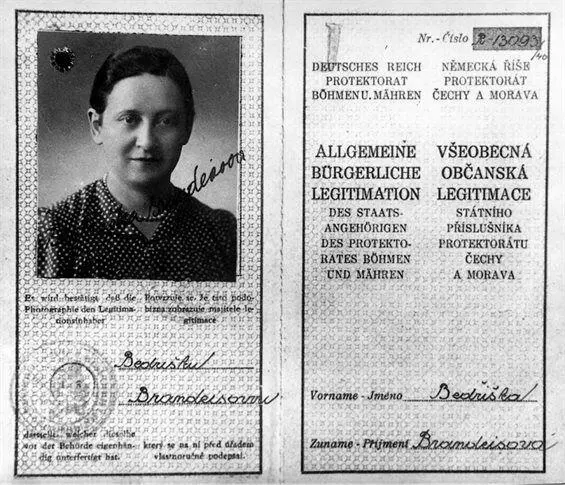 Fr. Brandeisova
Es wird bestätigt, daß die
Photographie den Legitima-
tionsinhaber
Potvrzuje se, že tato podo-
bizna zobrazuje majitele le-
gitimace
Bedřišku
Brandeisovou
darstellt, welcher dieselbe
vor der Behörde eigenhän-
dig unterfertigt hat.
který se na ní před úřadem
vlastnoručně podepsal.
Nr. - Číslo R-13093/40
DEUTSCHES REICH
PROTEKTORAT
BÖHMEN U. MÄHREN
NĚMECKÁ ŘÍŠE
PROTEKTORÁT
ČECHY A MORAVA
ALLGEMEINE
BÜRGERLICHE
LEGITIMATION
DES STAATS-
ANGEHÖRIGEN
DES PROTEKTO-
RATES BÖHMEN
UND MÄHREN
VŠEOBECNÁ
OBČANSKÁ
LEGITIMACE
STÁTNÍHO
PŘÍSLUŠNÍKA
PROTEKTORÁTU
ČECHY
A MORAVA
Vorname - Jméno Bedřiška
Zuname - Příjmení Brandeisova